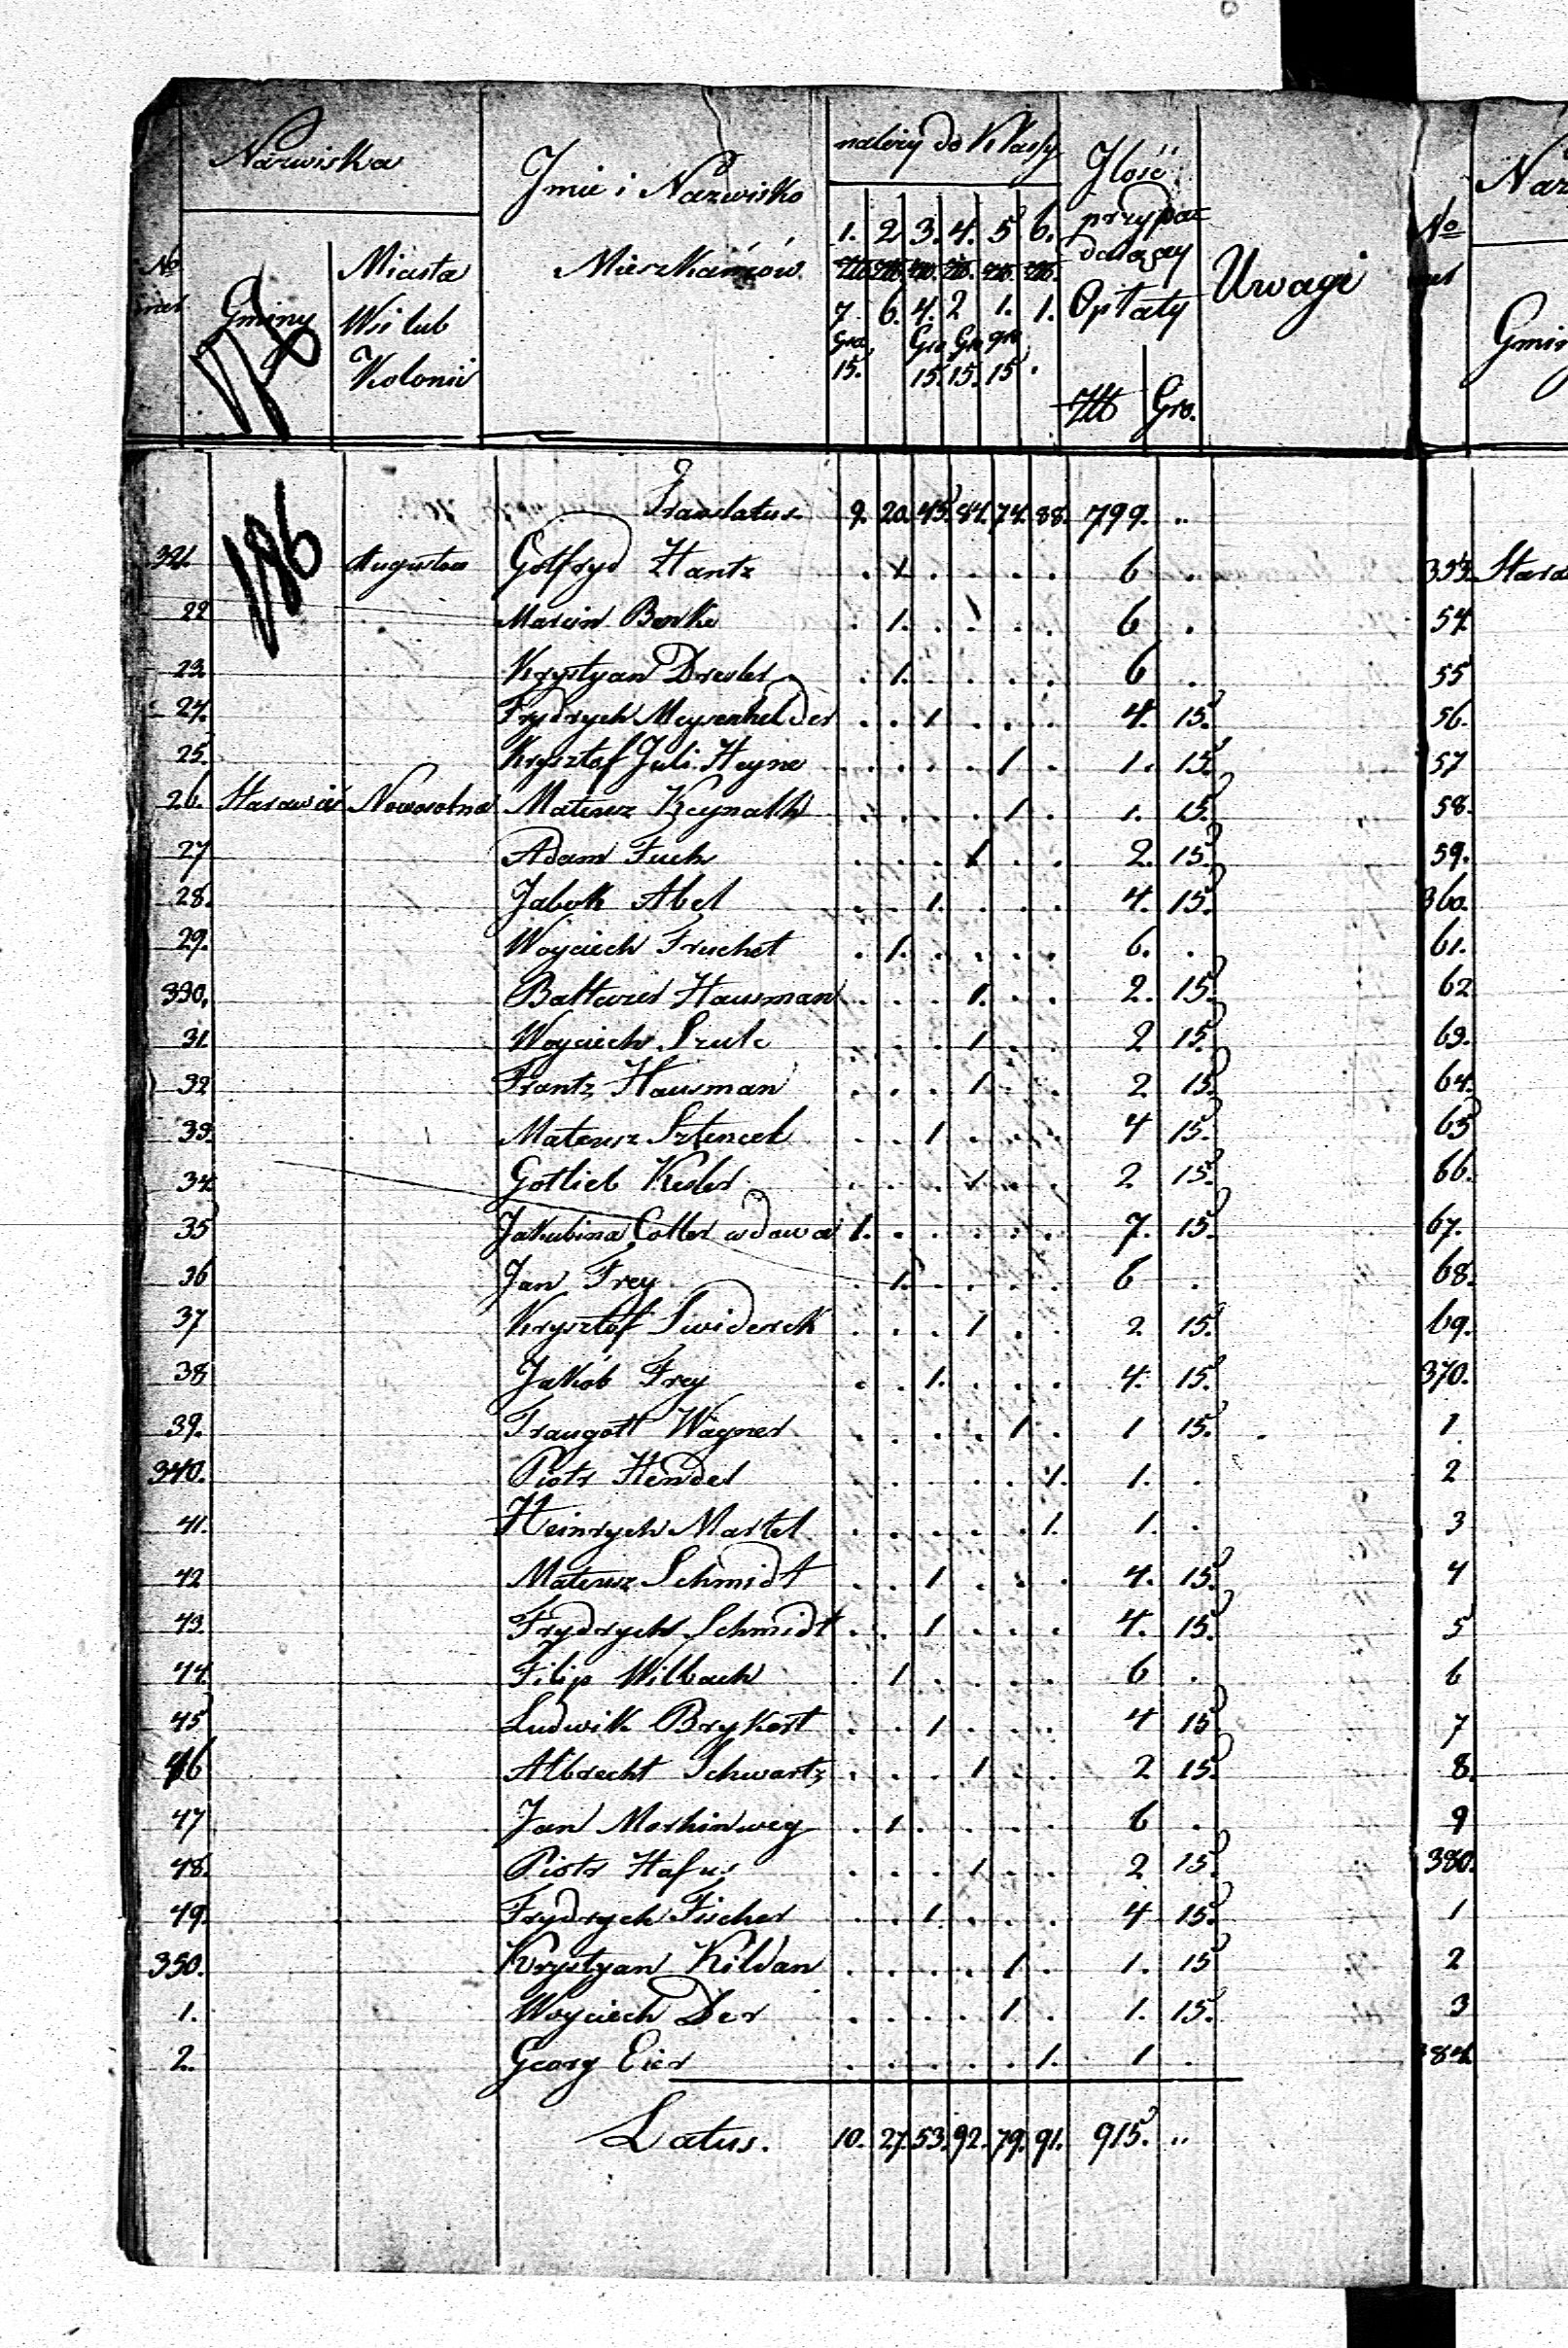 Nazwiska
Gminy
Miasta
Wsi lub
Kolonii
No
Jmie i Nazwisko
Mieszkańców
należy do Klassy
1. 2 3. 4. 5 6.
7. 6. 4. 2 1. 1.
Gro Gro Gro gro
15. 15. 15. 15
Jlość
przypa=
daiącey
Opłaty
Złł Gro.
Uwagi
176
186
Translatus 9. 20. 45. 84. 74. 88. 799. ..
321. Augustów Gotfryd Hantz . 1 . . . . 6 .
22 Marcin Banke . 1. . . . . 6 .
23. Krystyan Dresler . 1. . . . . 6 .
24. Frydrych Meysenhelder . . 1 . . . 4. 15.
25. Krysztof Juli. Heyne . . . . 1 . 1. 15.
26. Starawieś Nowosolna Mateusz Reynath . . . . 1 . 1. 15.
27 Adam Fuch . . . 1 . . 2. 15.
28. Jabok Abel . . 1. . . . 4. 15.
29. Woyciech Truchet . 1. . . . . 6. .
330. Baltazer Hausman . . . 1. . . 2. 15.
31. Woyciech Szulc . . . 1 . . 2 15.
32 Frantz Hausman . . . 1 . . 2 15.
33. Mateusz Sztencel . . 1 . . . 4 15.
34. Gotlieb Kesler . . . 1 . . 2 15.
35 Jakubina Cotter wdowa 1. . . . . . 7. 15.
36 Jan Frey . 1. . . . . 6 .
37 Krysztof Swiderck . . . 1 . . 2 15.
38 Jakób Frey . . 1. . . . 4. 15.
39. Traugott Wagner . . . . 1 . 1 15.
340. Piotr Hendel . . . . . 1. 1. .
41. Heinrych Martel . . . . . 1. 1. .
42 Mateusz Schmidt . . 1 . . . 4. 15.
43. Frydrych Schmidt . . 1 . . . 4. 15.
44. Filip Wilbach . 1 . . . . 6 .
45 Ludwik Brykert . . 1 . . . 4 15
46 Albrecht Schwartz . . . 1 . . 2 15.
47 Jan Morhinweg . 1. . . . . 6 .
48. Piotr Hafus . . . 1 . . 2 15.
49. Frydrych Fischer . . 1. . . . 4 15.
350. Krystyan Kildan . . . . 1 . 1. 15
1. Woyciech Der . . . . 1 . 1. 15.
2. Georg Eier . . . . . 1. 1 .
Latus. 10. 27. 53. 92. 79. 91. 915. ..
No
Gmin
353. Stara
54
55
56.
57
58.
59.
360.
61.
62
63.
64.
65
66.
67.
68.
69.
370.
1
2
3
4
5
6
7
8.
9
380.
1
2
3
384